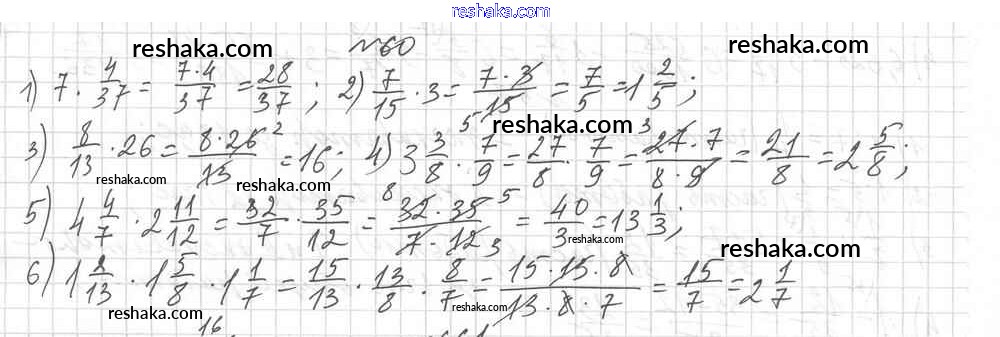 reshaka.com
reshaka.com №60 reshaka.com
1) 7 · 4/37 = 7·4/37 = 28/37 ; 2) 7/15 · 3 = 7·3/15 5 = 7/5 = 1 2/5 ;
reshaka.com
3) 8/13 · 26 = 8·26 2/13 = 16 ; 4) 3 3/8 · 7/9 = 27/8 · 7/9 = 3 27·7/8·9 = 21/8 = 2 5/8 ;
reshaka.com reshaka.com
5) 4 4/7 · 2 11/12 = 32/7 · 35/12 = 8 32·35 5/7·12 3 = 40/3 = 13 1/3 ;
reshaka.com reshaka.com reshaka.com
6) 1 2/13 · 1 5/8 · 1 1/7 = 15/13 · 13/8 · 8/7 = 15·15·8/13·8·7 = 15/7 = 2 1/7
reshaka.com reshaka.com reshaka.com
16